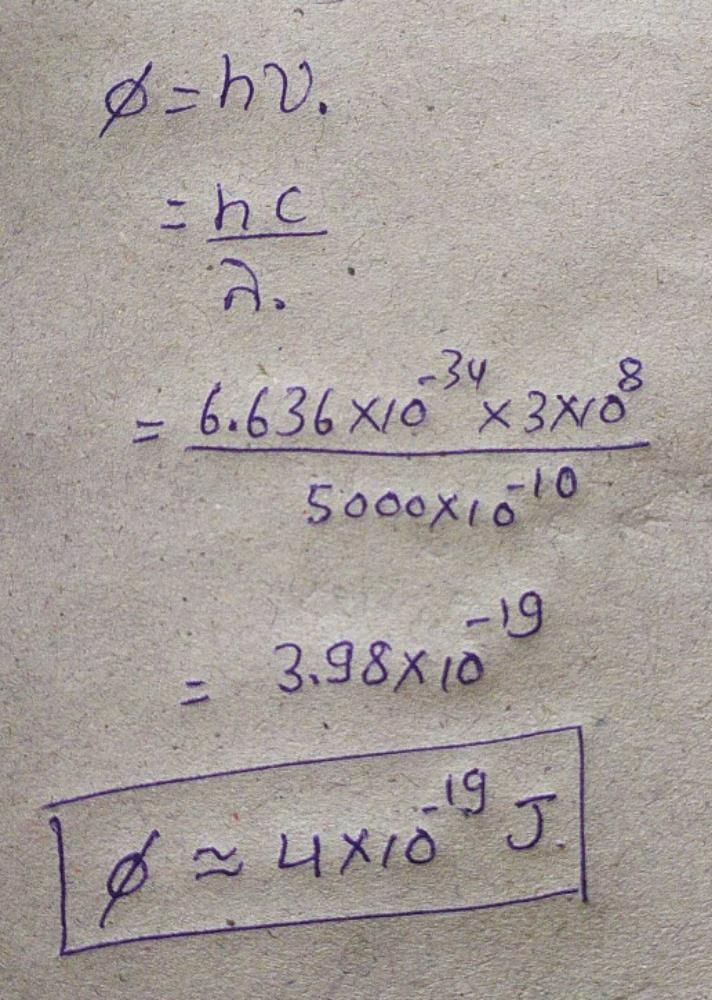 ϕ = hν.
= hc
λ.
= 6.636×10^-34 × 3×10^8
5000×10^-10
= 3.98×10^-19
ϕ ≃ 4×10^-19 J.